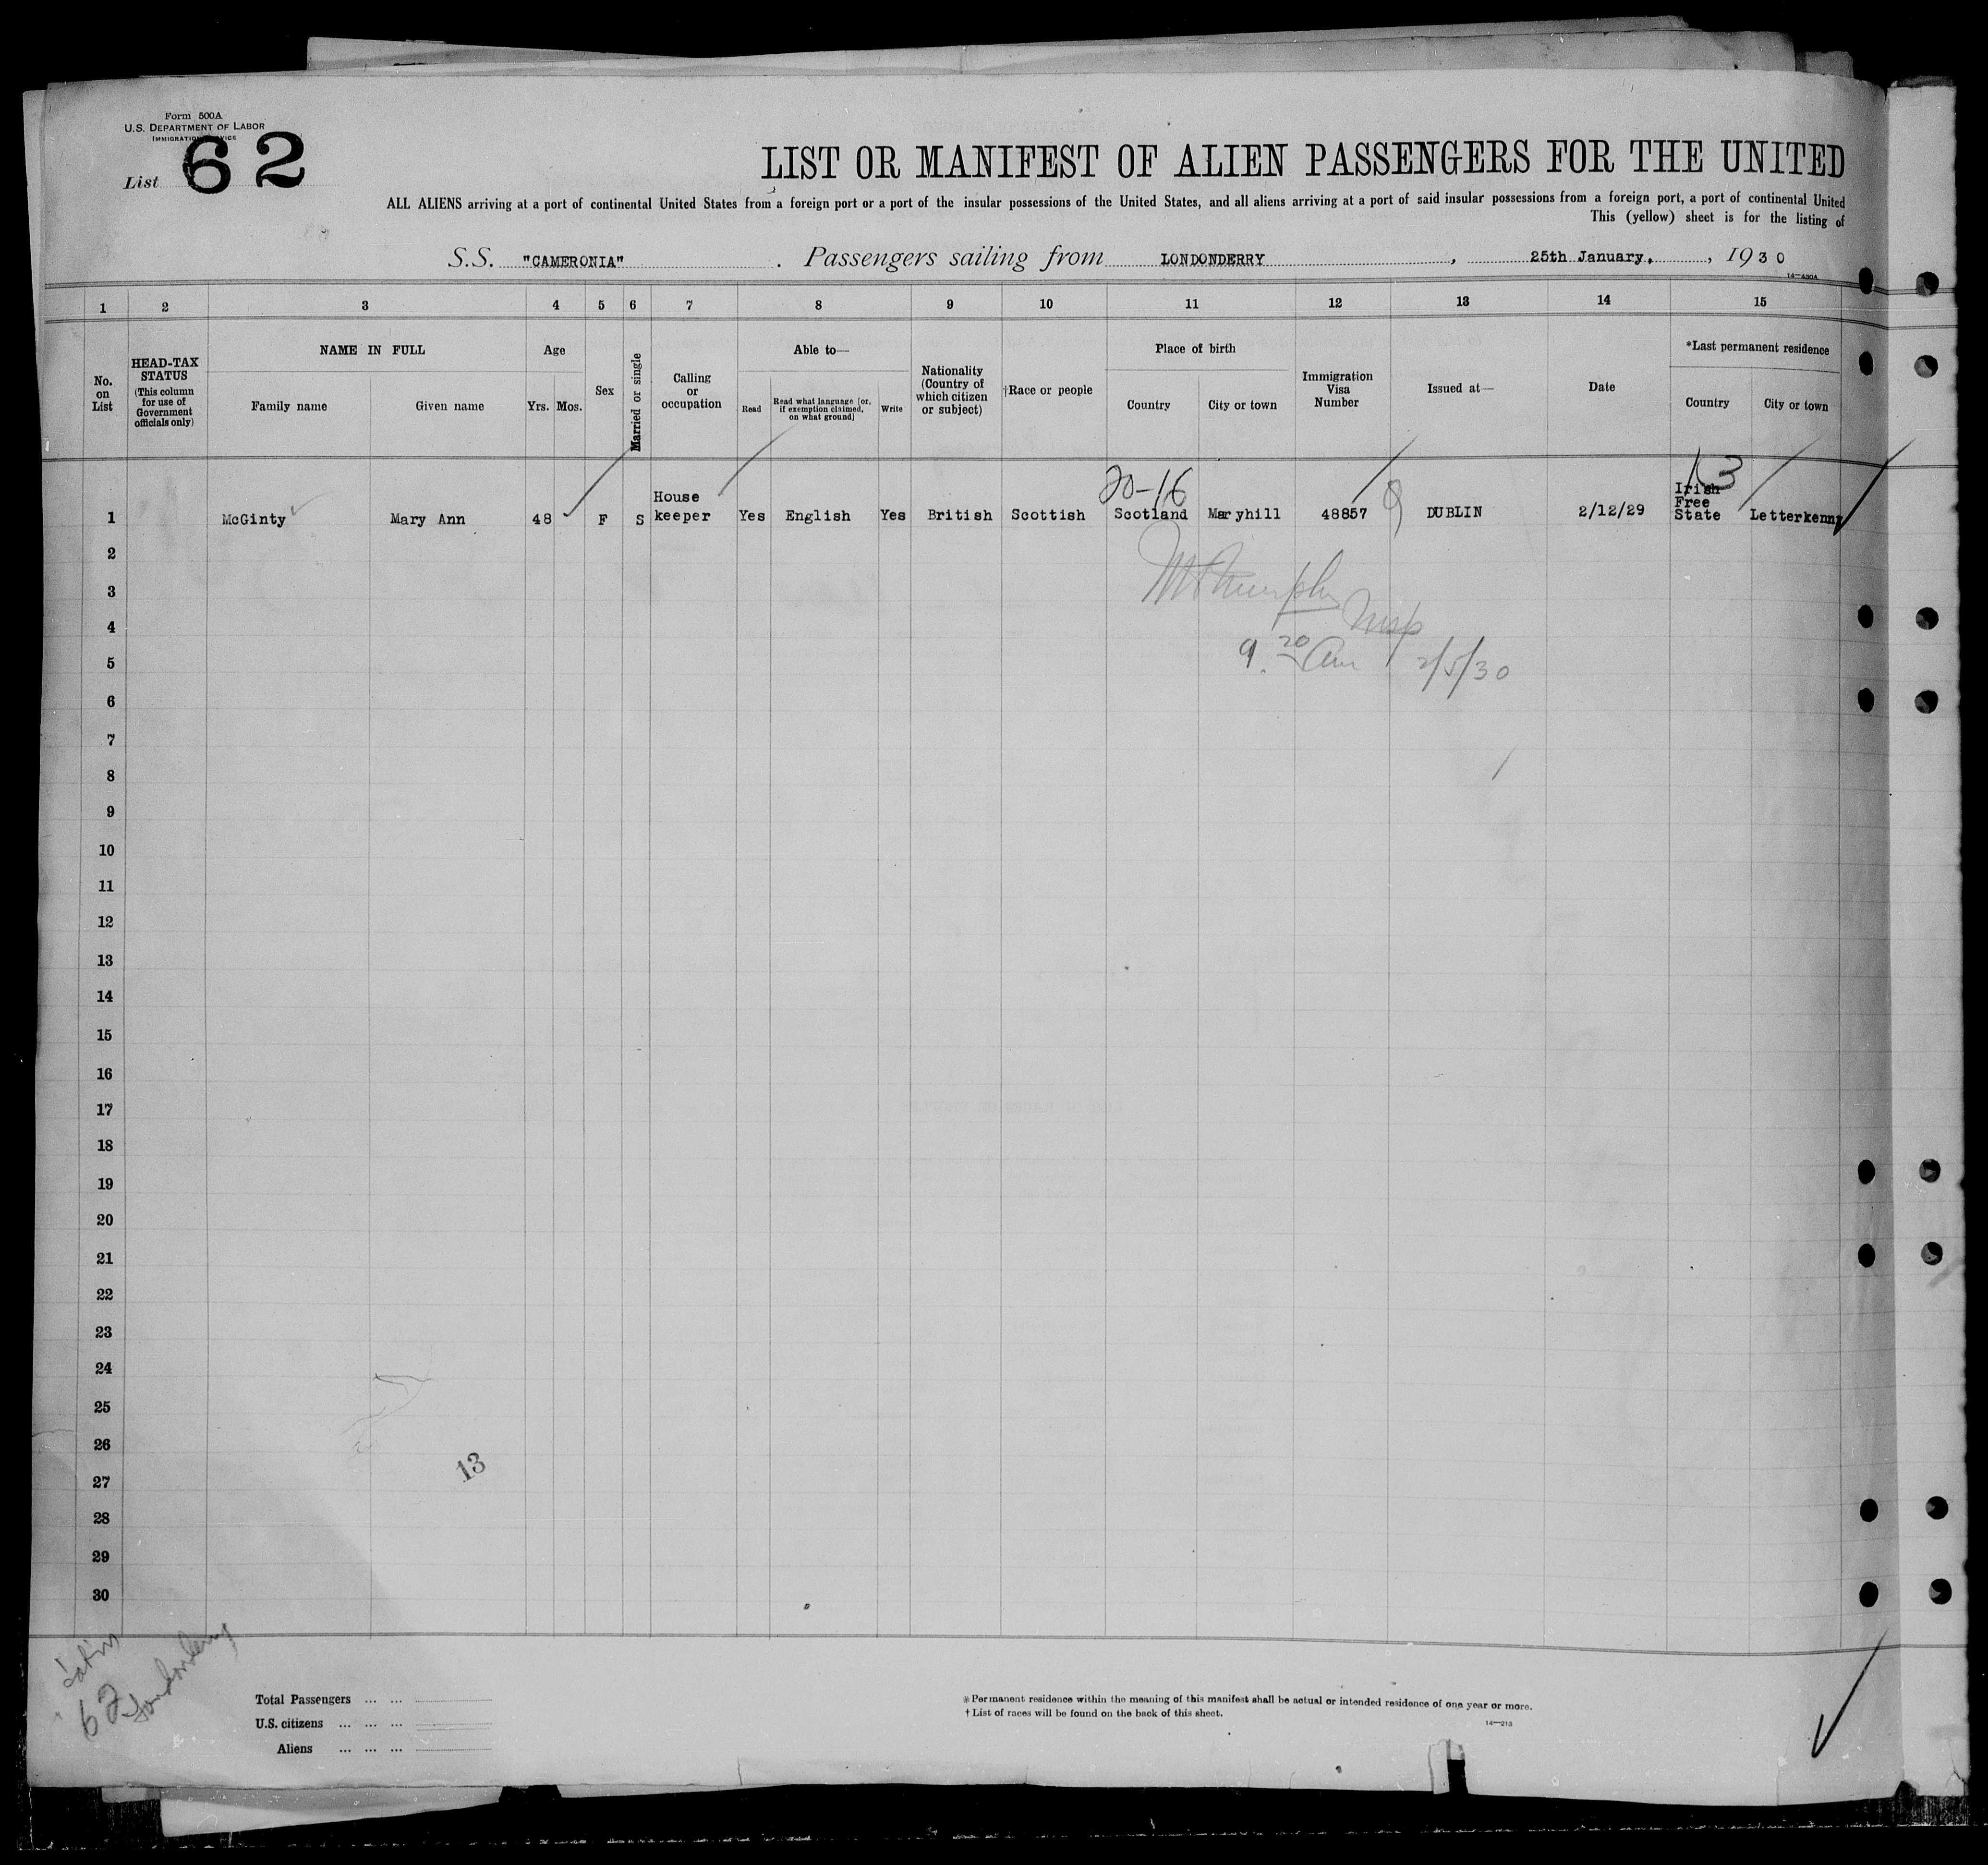 Form 500A
U.S. DEPARTMENT OF LABOR
IMMIGRATION SERVICE
List 62
LIST OR MANIFEST OF ALIEN PASSENGERS FOR THE UNITED
ALL ALIENS arriving at a port of continental United States from a foreign port or a port of the insular possessions of the United States, and all aliens arriving at a port of said insular possessions from a foreign port, a port of continental United
This (yellow) sheet is for the listing of
S.S. "CAMERONIA". Passengers sailing from LONDONDERRY, 25th January, 1930
14—430A
1 2 3 4 5 6 7 8 9 10 11 12 13 14 15
No. on List
HEAD-TAX STATUS (This column for use of Government officials only)
NAME IN FULL
Family name Given name
Age
Yrs. Mos.
Sex
Married or single
Calling or occupation
Able to—
Read
Read what language [or, if exemption claimed, on what ground]
Write
Nationality (Country of which citizen or subject)
†Race or people
Place of birth
Country City or town
Immigration Visa Number
Issued at—
Date
*Last permanent residence
Country City or town
20-16
13
1 McGinty Mary Ann 48 F S House keeper Yes English Yes British Scottish Scotland Maryhill 48857 DUBLIN 2/12/29 Irish Free State Letterkenny
2
Murphy
3
4
9.20 am 2/5/30
5
6
7
8
9
10
11
12
13
14
15
16
17
18
19
20
21
22
23
24
25
26
13
27
28
29
30
62 Londonderry
Total Passengers ... ...
U.S. citizens ... ... ...
Aliens ... ... ...
*Permanent residence within the meaning of this manifest shall be actual or intended residence of one year or more.
† List of races will be found on the back of this sheet.
14—213